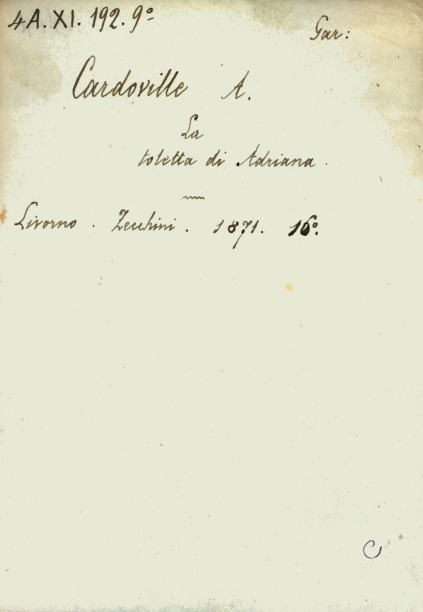 4A.XI.192.9º
Gar:
Cardoville A.
La
toletta di Adriana.
Livorno. Zecchini. 1871. 16º.
C